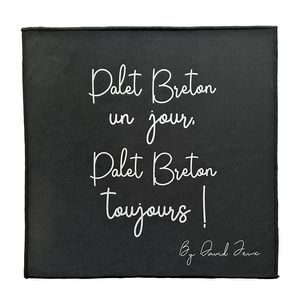 Palet Breton
un jour,
Palet Breton
toujours !
By David Jeux